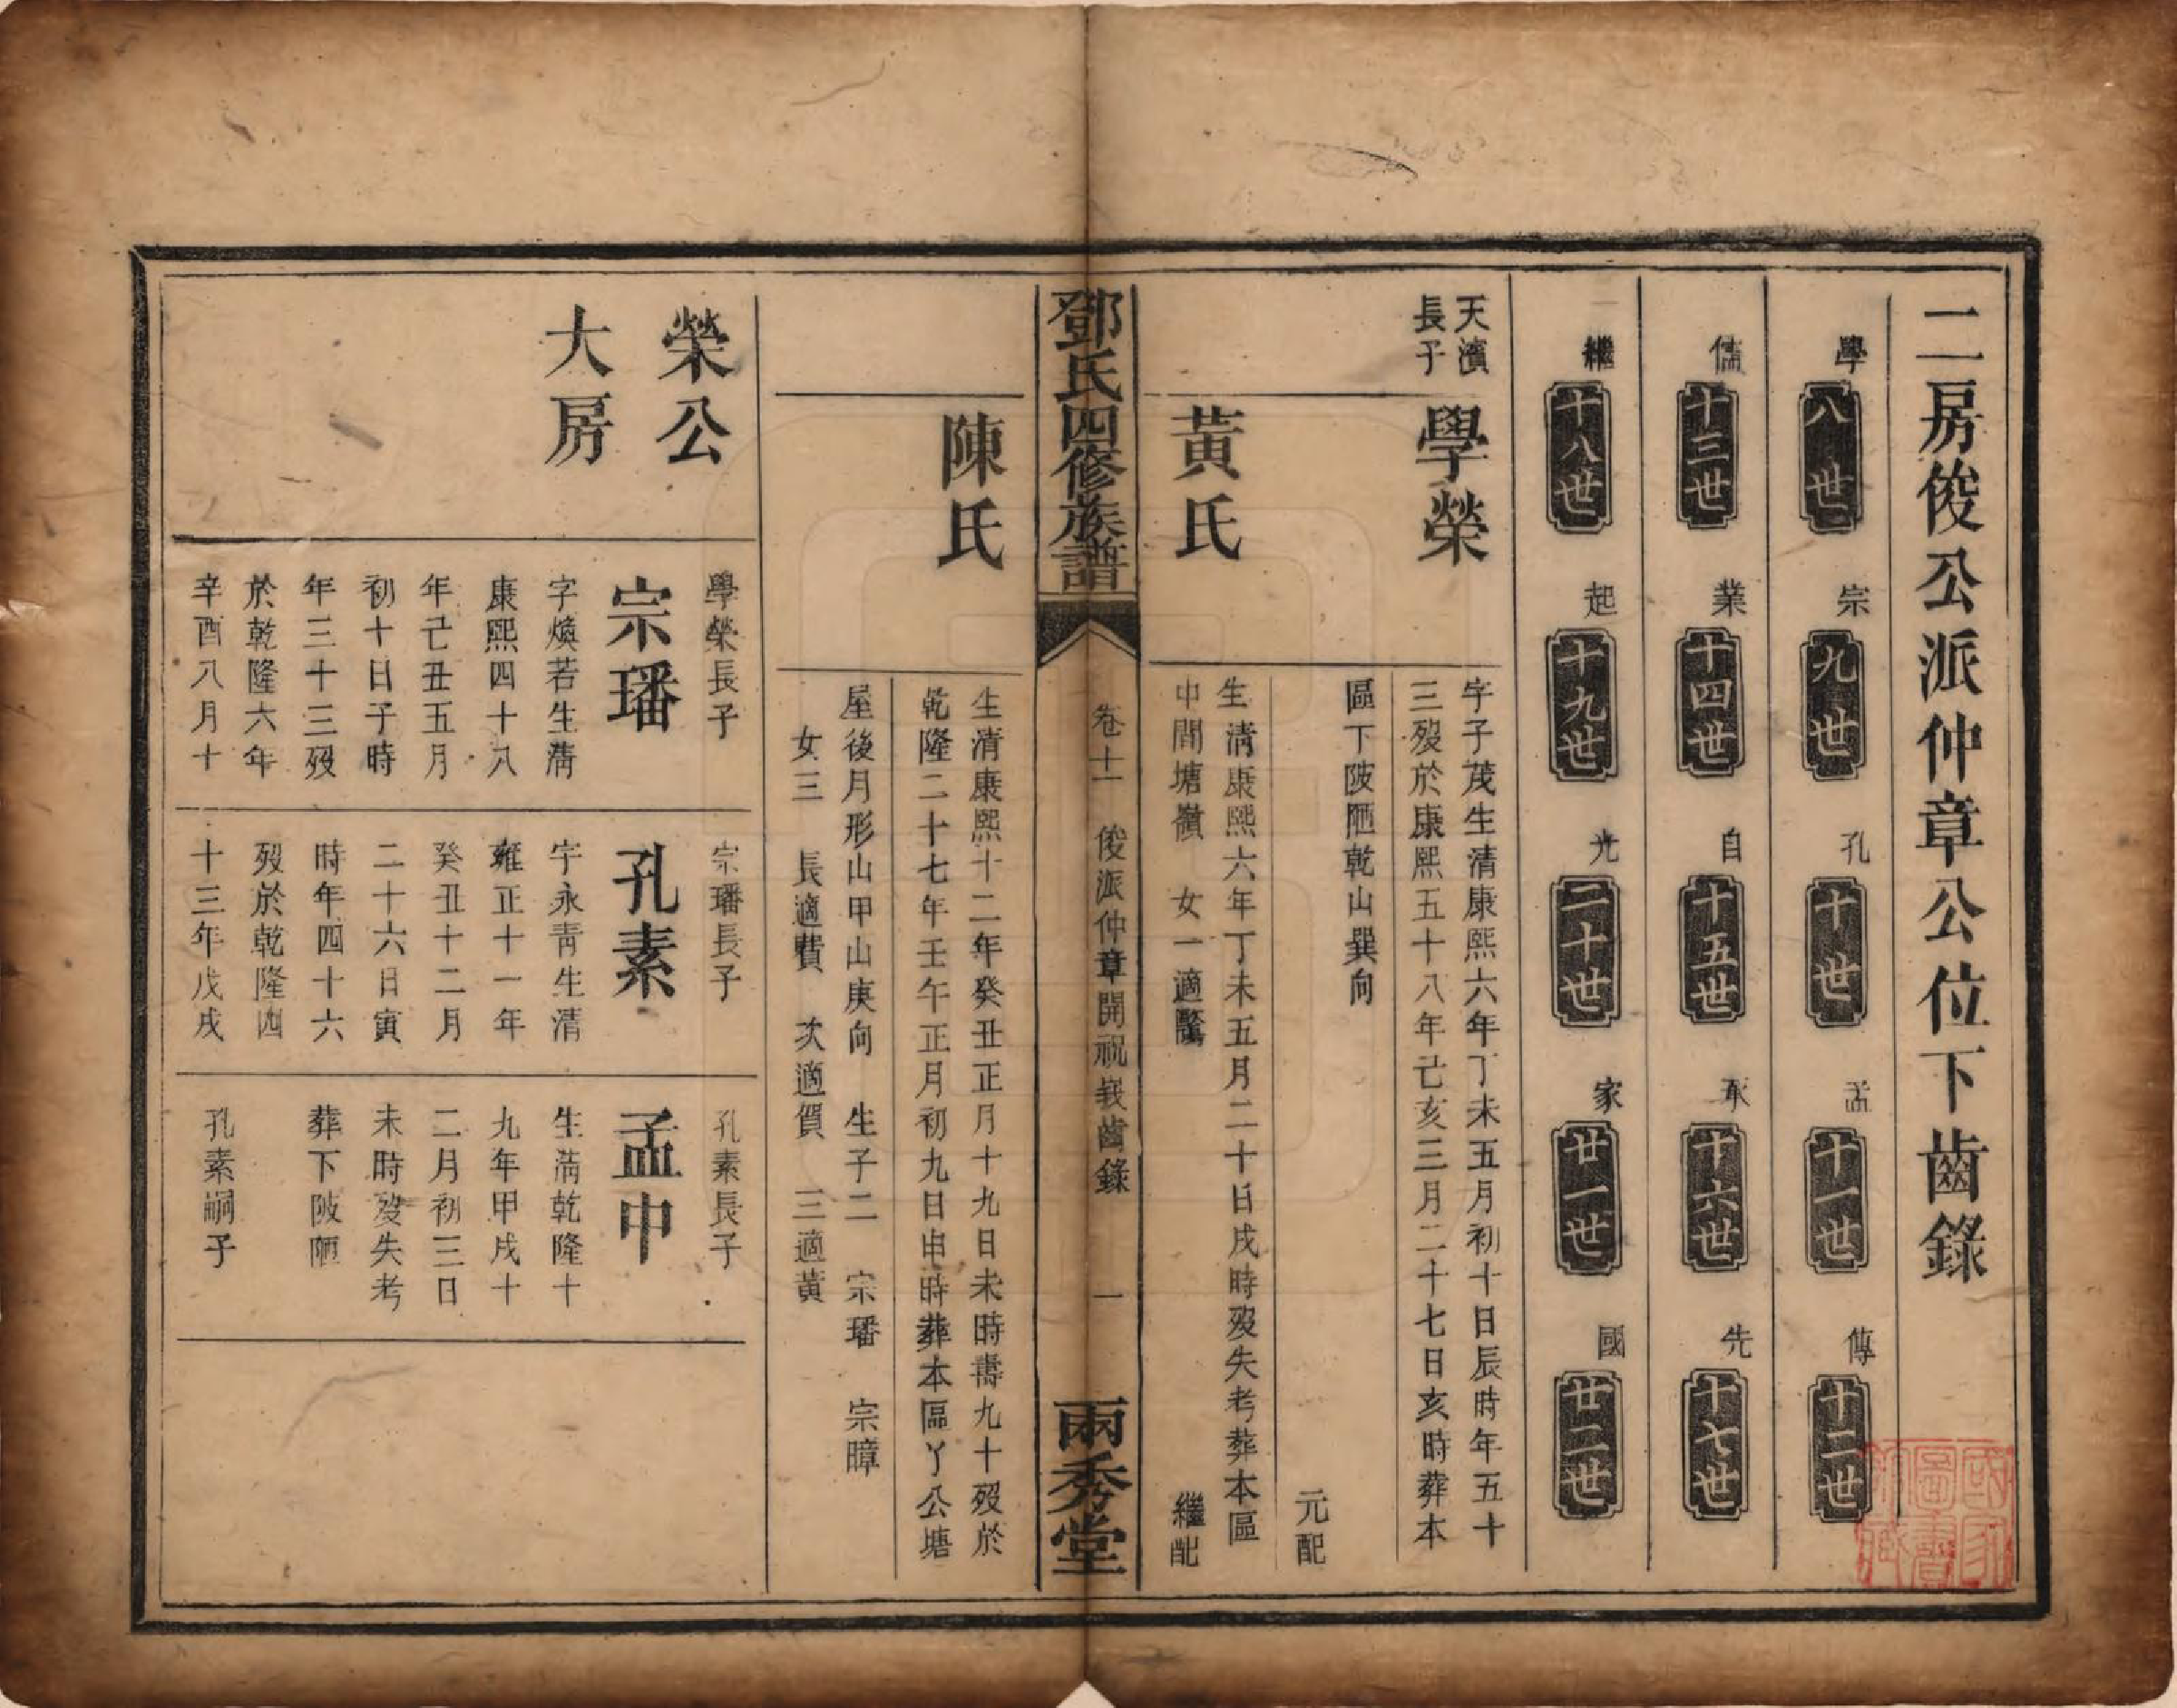 二房俊公派仲章公位下齒錄
學 八世 宗 九世 孔 十世 孟 十一世 傳 十二世
儒 十三世 業 十四世 自 十五世 承 十六世 先 十七世
繼 十八世 起 十九世 光 二十世 家 廿一世 國 廿二世
天濱
長子
學榮
字子茂生清康熙六年丁未五月初十日辰時年五十
三歿於康熙五十八年己亥三月二十七日亥時葬本
區下陂陋乾山巽向
元配
黃氏
生清康熙六年丁未五月二十日戌時歿失考葬本區
中間塘嶺 女一適 繼配
鄧氏四修族譜
卷十一 俊派仲章開祝 齒錄 一
兩秀堂
陳氏
生清康熙十二年癸丑正月十九日未時壽九十歿於
乾隆二十七年壬午正月初九日申時葬本區丫公塘
屋後月形山甲山庚向 生子二 宗璠 宗暲
女三 長適費 次適賀 三適黃
榮公
大房
學榮長子
宗璠
字煥若生清
康熙四十八
年己丑五月
初十日子時
年三十三歿
於乾隆六年
辛酉八月十
宗璠長子
孔素
字永靑生清
雍正十一年
癸丑十二月
二十六日寅
時年四十六
歿於乾隆四
十三年戊戌
孔素長子
孟中
生清乾隆十
九年甲戌十
二月初三日
未時歿失考
葬下陂陋
孔素嗣子
國家
圖書
館藏